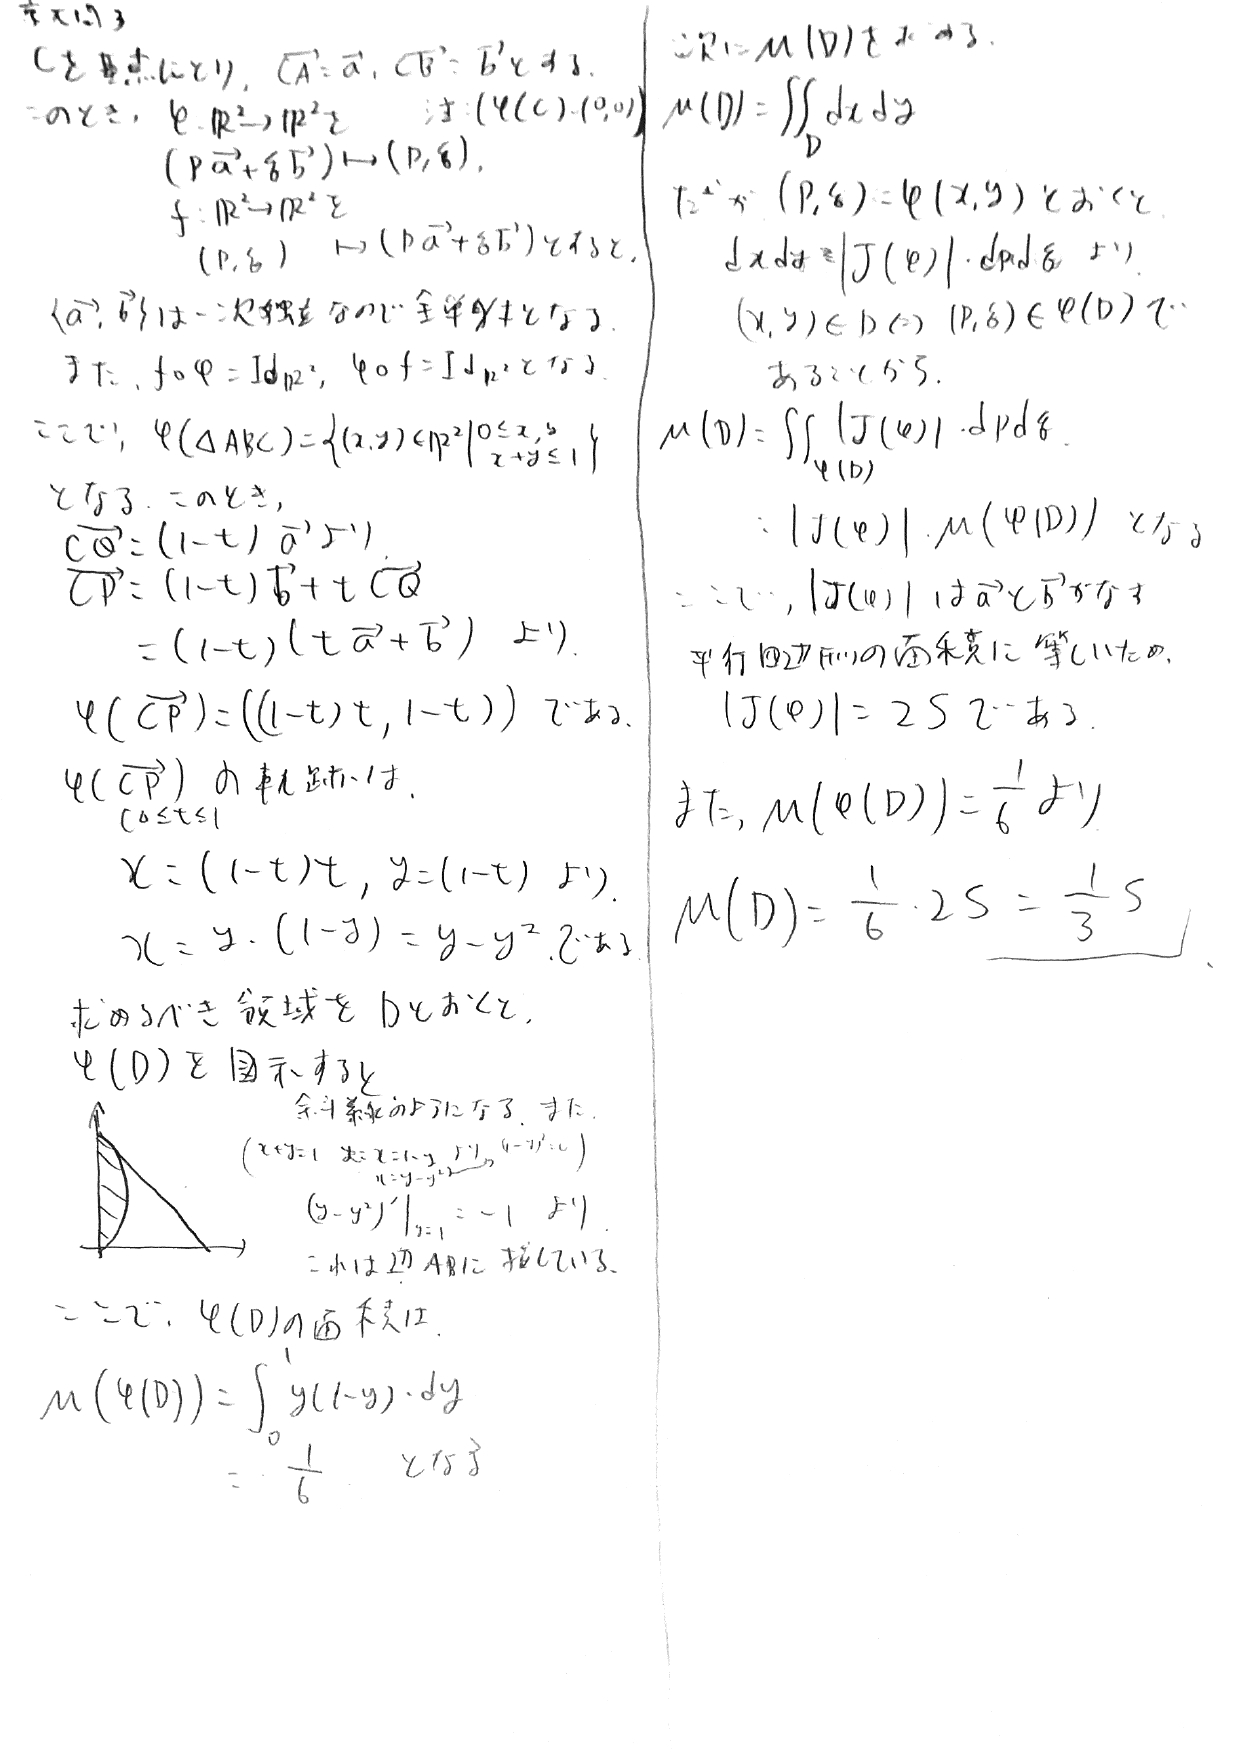 Cを原点にとり, CA→ = a→, CB→ = b→とする.
このとき, φ: ℝ²→ℝ²を 注:(φ(C)=(0,0))
(pa→+qb→)↦(p,q),
f: ℝ²→ℝ²を
(p,q) ↦(pa→+qb→)とすると,
{a→, b→}は一次独立なので全単射となる.
また, f∘φ=Id_ℝ², φ∘f=Id_ℝ²となる.
ここで, φ(△ABC)={(x,y)∈ℝ²|0≤x,y x+y≤1}
となる. このとき,
CQ→=(1-t)a→より,
CP→=(1-t)b→+tCQ→
=(1-t)(ta→+b→) より.
φ(CP→)=((1-t)t, 1-t)) である.
φ(CP→) の軌跡は,
(0≤t≤1
x=(1-t)t, y=(1-t) より,
x=y・(1-y)=y-y².である
求めるべき領域をDとおくと,
φ(D)を図示すると
斜線のようになる. また,
(x+y=1 x=1-y より,
x=y-y²
(y-y²)'|y=1 = -1 より.
これは辺ABに接している.
ここで, φ(D)の面積は.
μ(φ(D))=∫₀¹ y(1-y)・dy
= 1/6 となる
次にμ(D)を求める.
μ(D)=∬_D dxdy
だが (p,q)=φ(x,y)とおくと
dxdy=|J(φ)|・dpdq より.
(x,y)∈D⇔(p,q)∈φ(D)で
あることから.
μ(D)=∬_φ(D) |J(φ)|・dpdq.
=|J(φ)|・μ(φ(D)) となる
ここで, |J(φ)| はa→とb→がなす
平行四辺形の面積に等しいため,
|J(φ)|=2Sである.
また, μ(φ(D))=1/6より
μ(D)=1/6・2S=1/3 S